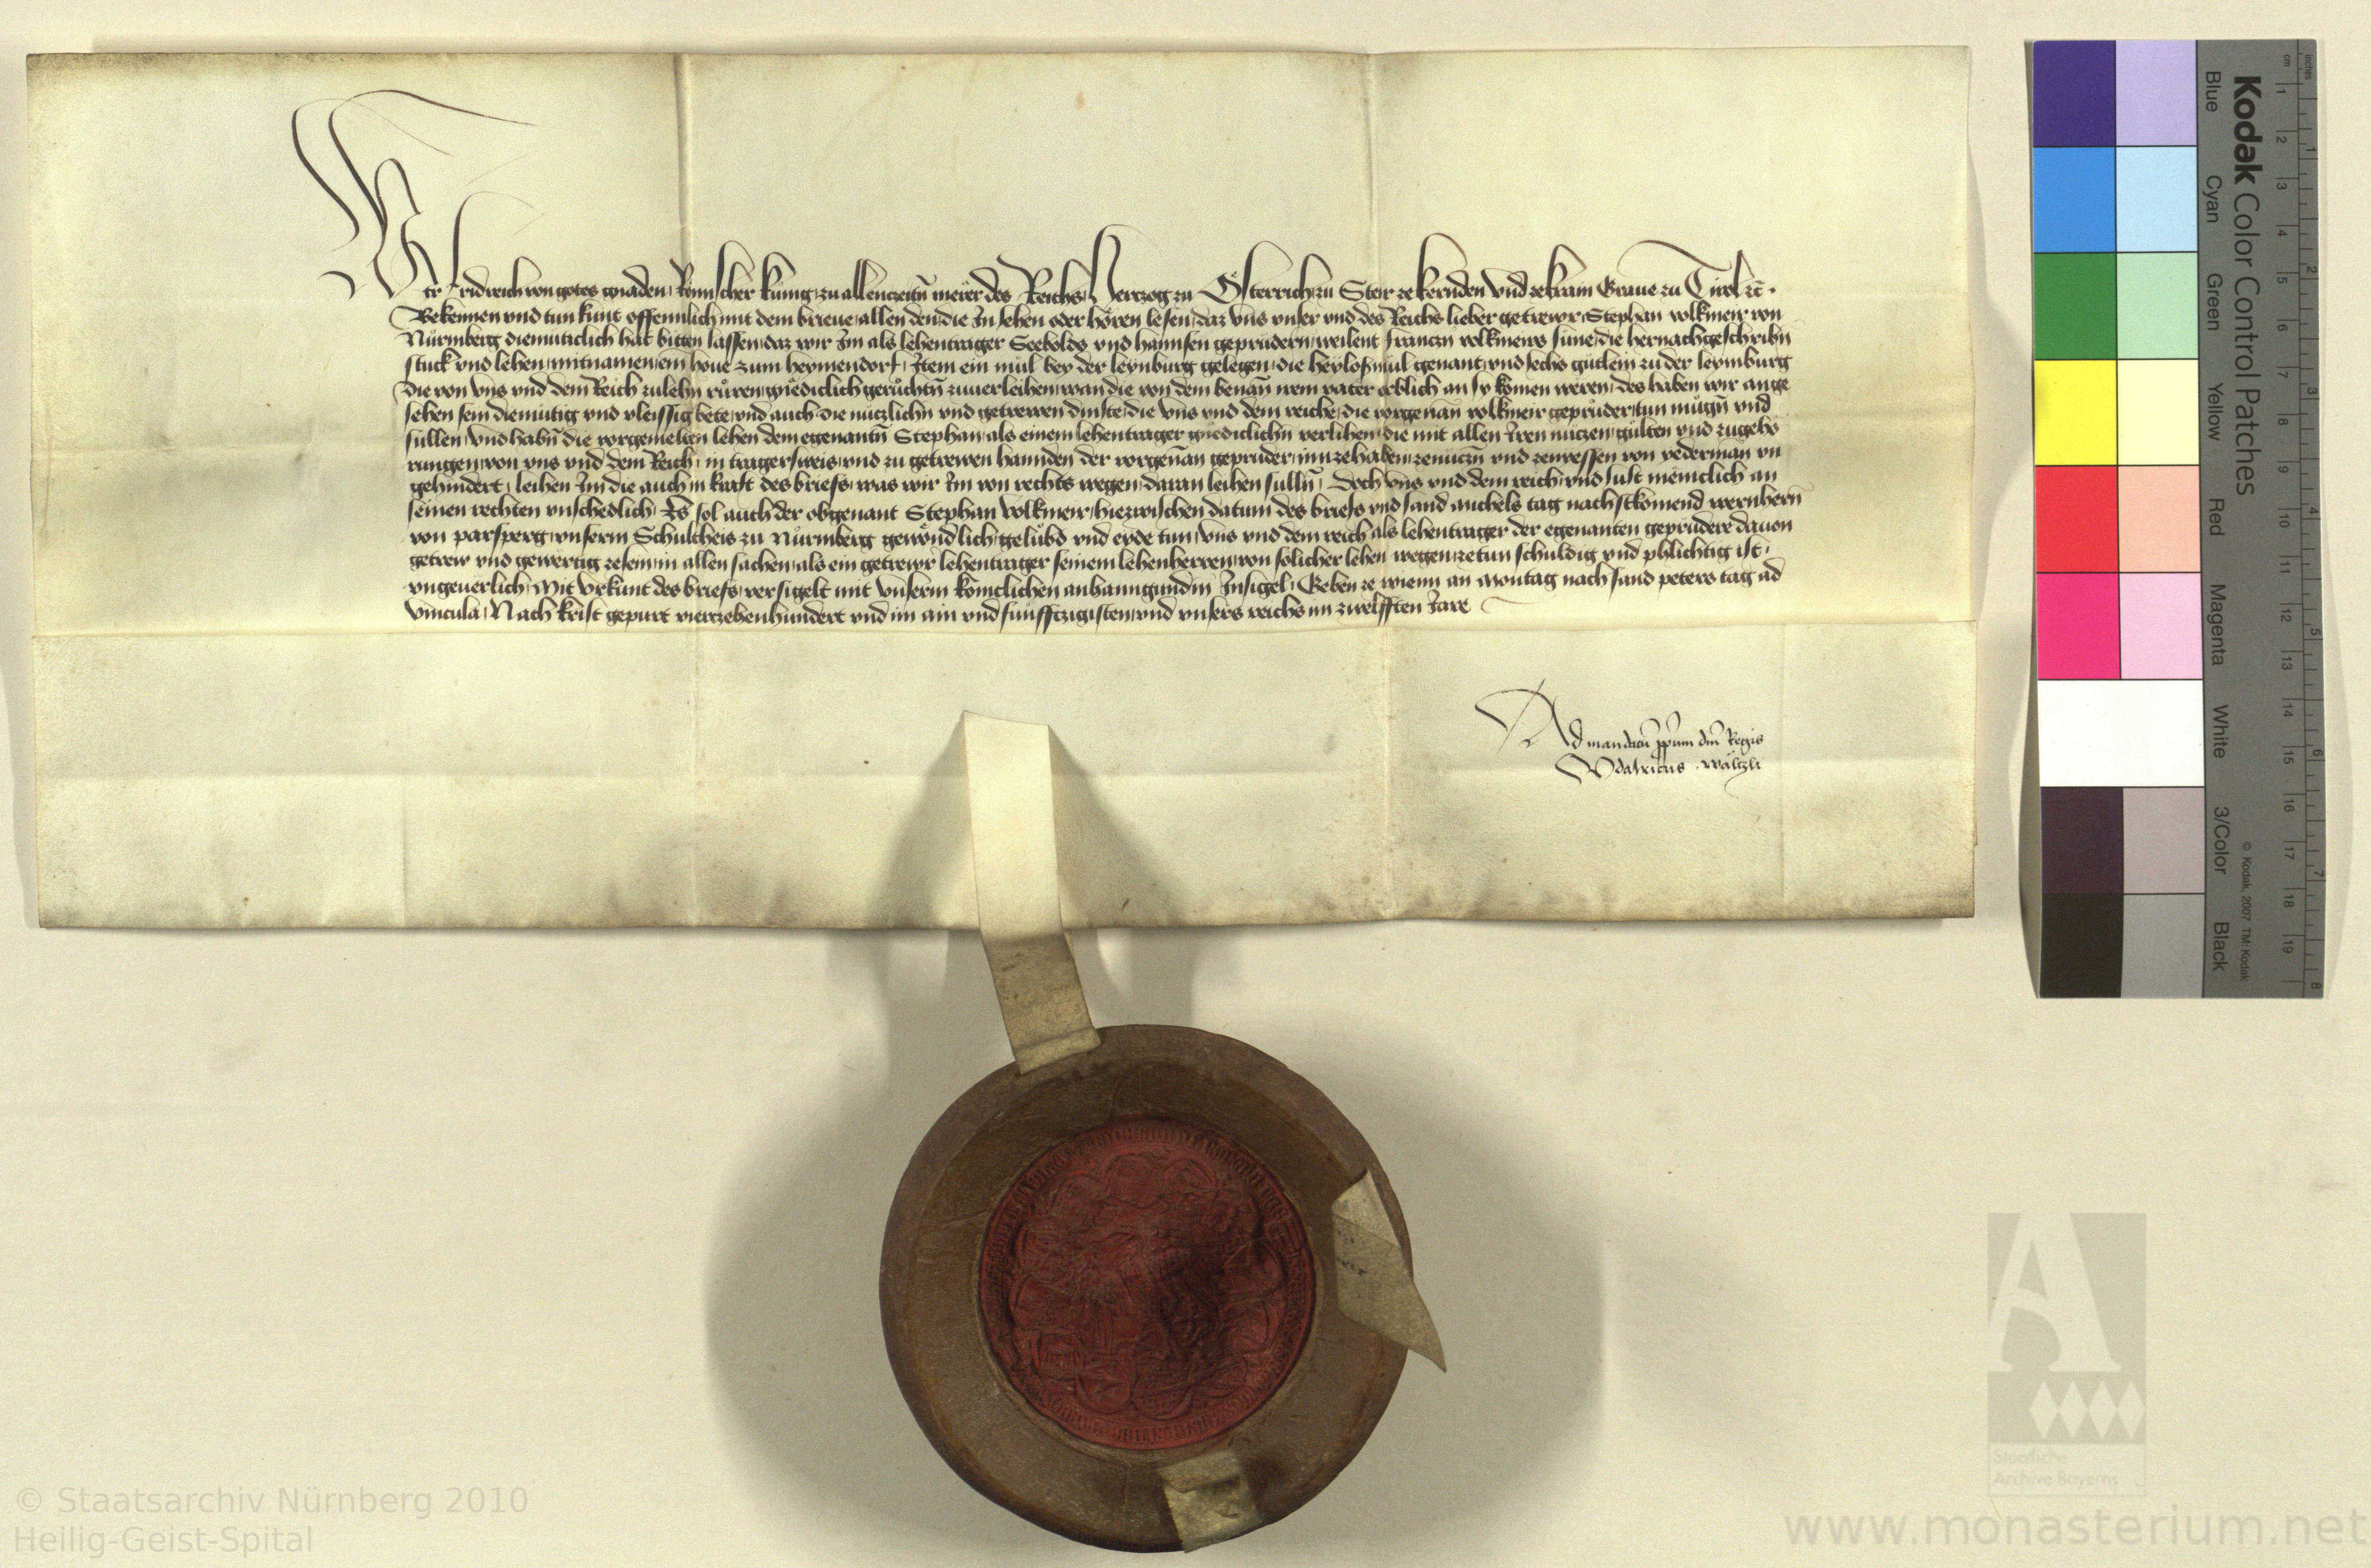 Wir Fridreich von gotes gnaden Romischer kunig zu allenczeitn merer des Reichs Herczog zu Österrich zu Steir ze kernden und ze krain Graue zu Tirol etc.
Bekennen vnd tun kunt offennlich mit dem brieue allen den die In sehen oder hören lesen daz vns vnser vnd des Reichs lieber getrewr Stephan volkmeir von
Nůrmberg diemuticlich hat bitten lassen daz wir Im als lehentrager Seebolds vnd hannsen geprudern weilent franczn volkmeirs sune die hernachgeschribn
stuck vnd lehen mitnamen ein houe zum heymendorf Item ein mül bey der leynburg gelegen die heyloßmül genant vnd sechs gutlein zu der leymburg
die von vns vnd dem Reich zulehn růren gnediclich gerůchtn zuuerleihen wan die von dem benañ irem vater erblich an sy komen weren des haben wir ange
sehen sein diemütig vnd vleissig bete vnd auch die nuczlichn vnd getrewen dinste die vns vnd dem reiche die vorgenañ volkmeir geprůder tun můgn vnd
sullen vnd habñ die vorgemelten lehen dem egenantñ Stephan als einem lehentrager gnediclichn verlihen die mit allen Iren nuczen gülten vnd zugehö
rungen von vns vnd dem Reich in tragersweis vnd zu getrewen hannden der vorgenañ geprüder innzehaben zenuczñ vnd zenyessen von yederman vn
gehindert leihen Im die auch in kraft des briefs was wir Im von rechts wegen daran leihen sulln Doch vns vnd dem reich vnd sust meniclich an
seinen rechten vnschedlich Es sol auch der obgenant Stephan volkmeir hiezwischen datum des briefs vnd sand michels tag nachstkomend wernhern
von parsperg vnserm Schultheis zu Nürmberg gewöndlich gelübd vnd eyde tun vns vnd dem reich als lehentrager der egenanten geprüdere dauon
getrew vnd gewertig ze sein in allen sachen als ein getrewr lehentrager seinem lehenherren von solicher lehen wegen ze tun schuldig vnd phlichtig ist
vngeuerlich Mit vrkunt des briefs versigelt mit vnserm kůniclichen anhanngundm Insigel Geben ze wienn an Montag nach sand peters tag ad
vincula Nach krist gepurt vierzehenhundert vnd im ain vnd fünffczigisten vnd vnsers reichs im zwelfften Jare
Ad mandatũ ppium dñi Regis
Vdalricus wälczli
Kodak Color Control Patches
Blue Cyan Green Yellow Red Magenta White 3/Color Black
© Kodak, 2007 TM: Kodak
inches 1 2 3 4 5 6 7 8
cm 1 2 3 4 5 6 7 8 9 10 11 12 13 14 15 16 17 18 19
Staatliche
Archive Bayerns
© Staatsarchiv Nürnberg 2010
Heilig-Geist-Spital
www.monasterium.net